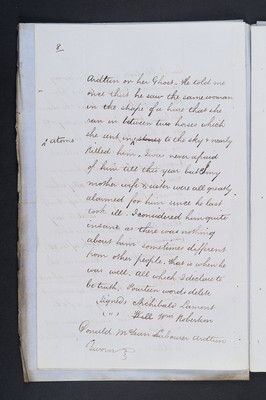 8.
Ardtun on her Ghost. He told me
once that he saw the same woman
in the shape of a hare that she
ran in between two horses which
she sent, in stones to the sky & nearly
^ atoms
killed him. I was never afraid
of him till this year but my
mother wife & sister were all greatly
alarmed for him since he last
took ill. I considered him quite
insane as there was nothing
about him sometimes different
from other people, that is when he
was well. All which I declare to
be truth. Fourteen words delete
Signed, Archibald Lamont
( " ) Will Tom Robertson
Donald McLean Labourer Ardtun
Sworn